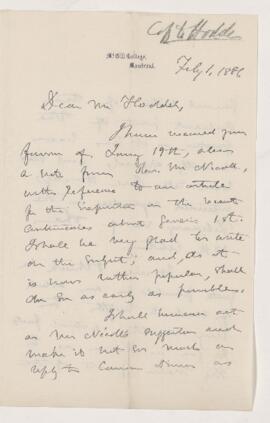 McGill College,
Montreal.
Feby 1, 1886
Dear Mr Hodder,
I have received your
favour of Jany 19th, also
a note from Revd. Mr Nicoll,
with reference to an article
for the Expositor on the recent
controversies about Genesis 1st.
I shall be very glad to write
on the subject; and, as it
is now rather popular, shall
do so as early as possible.
I shall however act
on Mr Nicoll's suggestion and
make it not so much a
reply to Canon Driver as